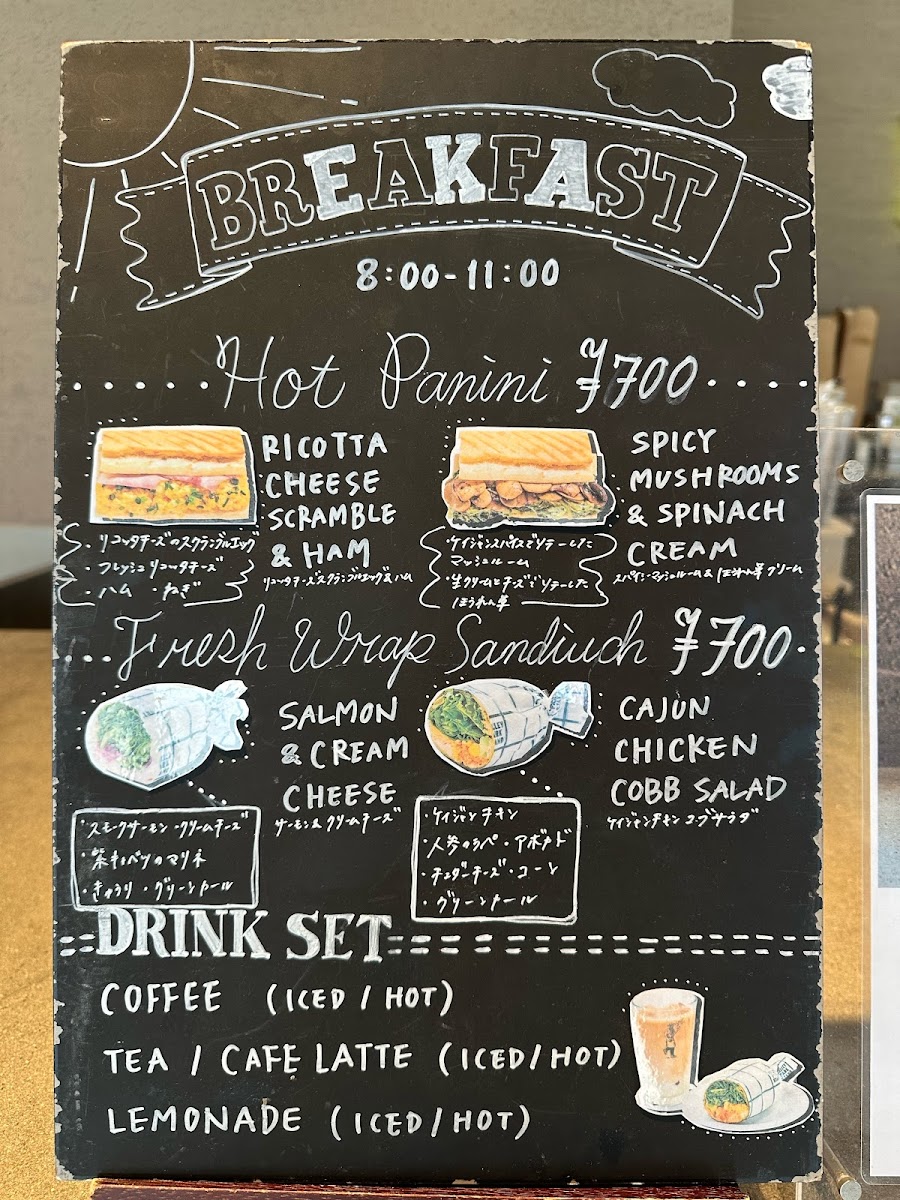 BREAKFAST
8:00-11:00
Hot Panini ¥700
RICOTTA
CHEESE
SCRAMBLE
& HAM
リコッタチーズスクランブルエッグ&ハム
・リコッタチーズのスクランブルエッグ
・フレッシュリコッタチーズ
・ハム ・ねぎ
SPICY
MUSHROOMS
& SPINACH
CREAM
スパイシーマッシュルーム&ほうれん草クリーム
・ケイジャンスパイスでソテーした
マッシュルーム
・生クリームとチーズでソテーした
ほうれん草
Fresh Wrap Sandwich ¥700
SALMON
& CREAM
CHEESE
サーモン&クリームチーズ
・スモークサーモン・クリームチーズ
・紫キャベツのマリネ
・きゅうり・グリーンケール
CAJUN
CHICKEN
COBB SALAD
ケイジャンチキンコブサラダ
・ケイジャンチキン
・人参のラペ・アボカド
・チェダーチーズ・コーン
・グリーンケール
DRINK SET
COFFEE (ICED / HOT)
TEA / CAFE LATTE (ICED/HOT)
LEMONADE (ICED/HOT)